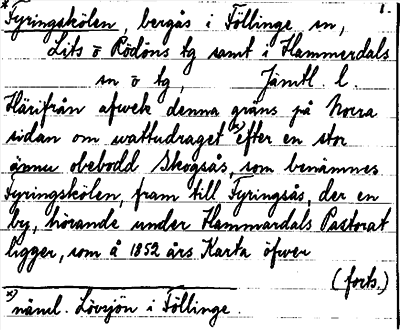 * Fyringskölen, bergås i Föllinge sn, 1.
Lits o Rödöns tg samt i Hammerdals
sn o tg, Jämtl. l.
Härifrån afwek denna gräns på Norra
sidan om wattudraget *) efter en stor
ännu obebodd Skogsås, som benämnes
Fyringskölen, fram till Fyringsås, der en
by, hörande under Hammardals Pastorat
ligger, som å 1852 års Karta öfwer
(forts.)
*) näml. Lövsjön i Föllinge.